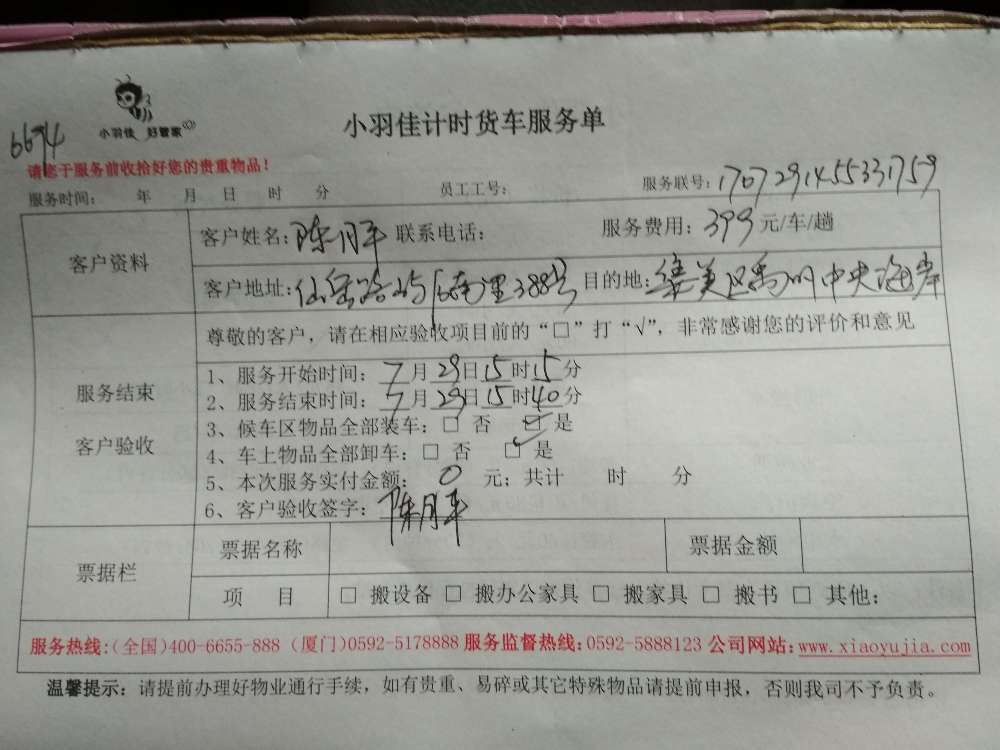 小羽佳 好管家
小羽佳计时货车服务单
6694
请您于服务前收拾好您的贵重物品！
服务时间： 年 月 日 时 分 员工工号： 服务联号：1707291455331759
客户资料
客户姓名：陈月平 联系电话： 服务费用：399元/车/趟
客户地址：仙岳路 388号 目的地：集美区禹州中央海岸
服务结束
客户验收
尊敬的客户，请在相应验收项目前的“□”打“√”，非常感谢您的评价和意见
1、服务开始时间：7月29日15时15分
2、服务结束时间：7月29日15时40分
3、候车区物品全部装车：□ 否 ☑ 是
4、车上物品全部卸车：□ 否 ☑ 是
5、本次服务实付金额： 0 元；共计 时 分
6、客户验收签字：陈月平
票据栏
票据名称 票据金额
项 目 □ 搬设备 □ 搬办公家具 □ 搬家具 □ 搬书 □ 其他：
服务热线：(全国)400-6655-888 (厦门)0592-5178888 服务监督热线：0592-5888123 公司网站：www.xiaoyujia.com
温馨提示：请提前办理好物业通行手续，如有贵重、易碎或其它特殊物品请提前申报，否则我司不予负责。